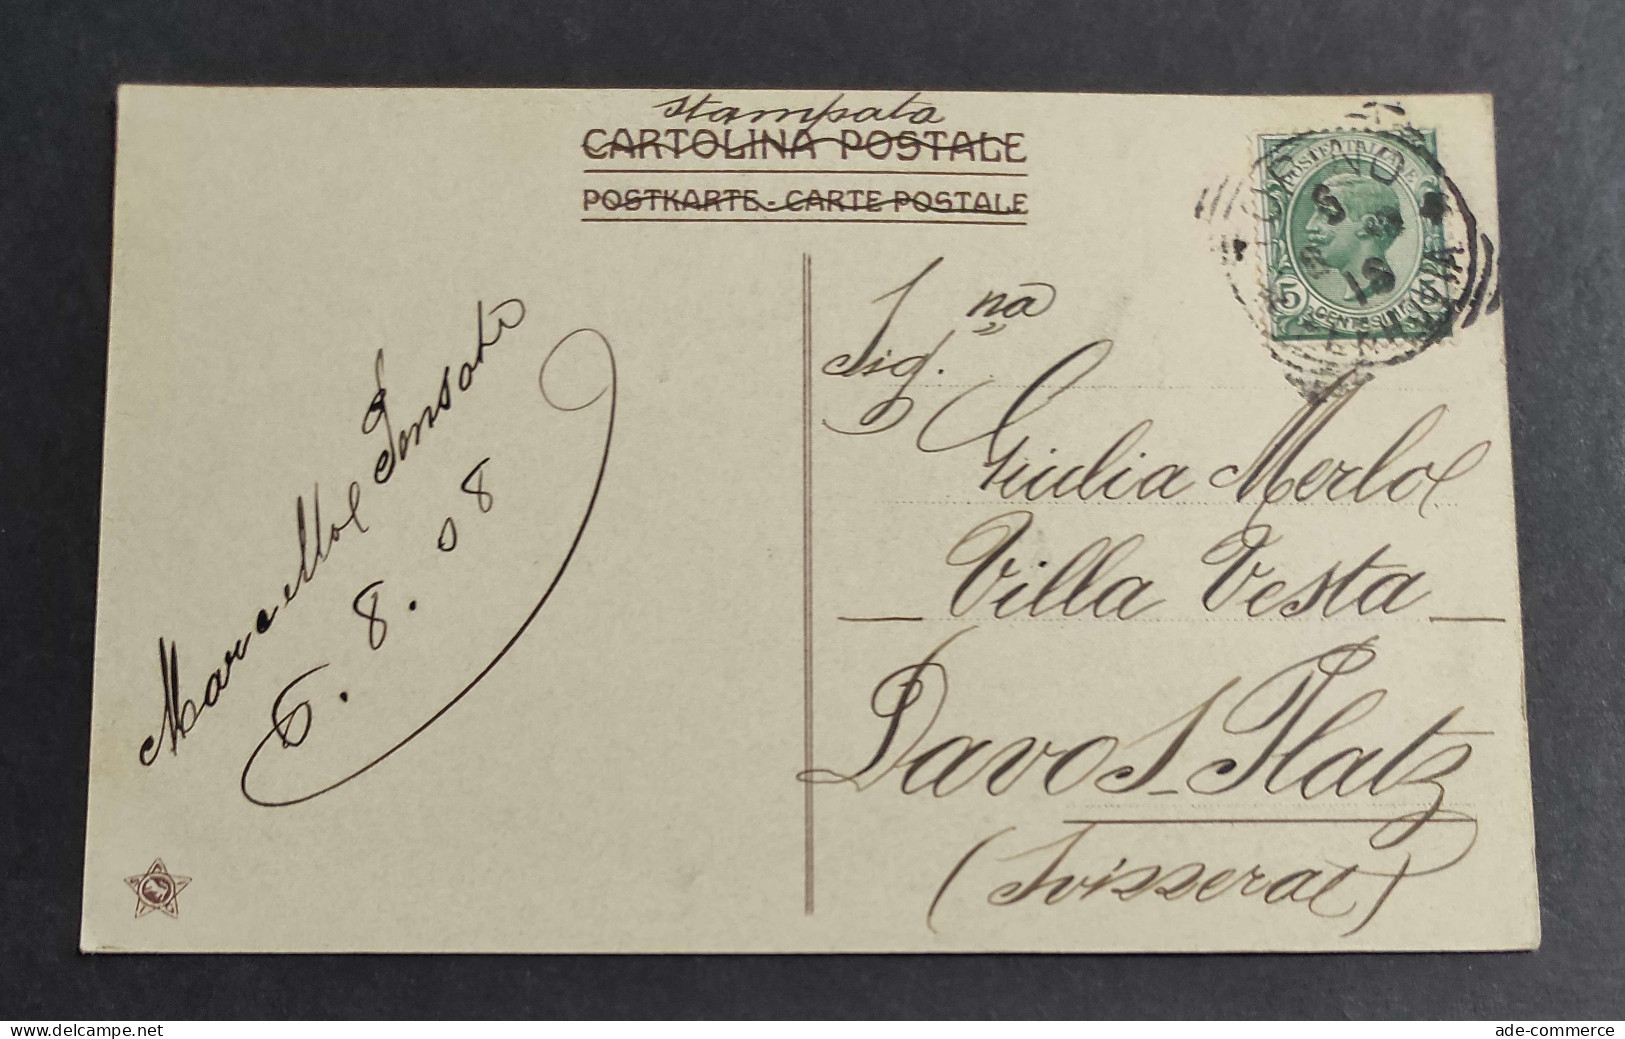 stampata
CARTOLINA POSTALE
POSTKARTE - CARTE POSTALE
POSTE ITALIANE
5 5
CENTESIMI
Sig.na
Giulia Merlo
Villa Vesta
Davos-Platz
(Svizzera)
6. 8. 08
delcampe.net
ade-commerce